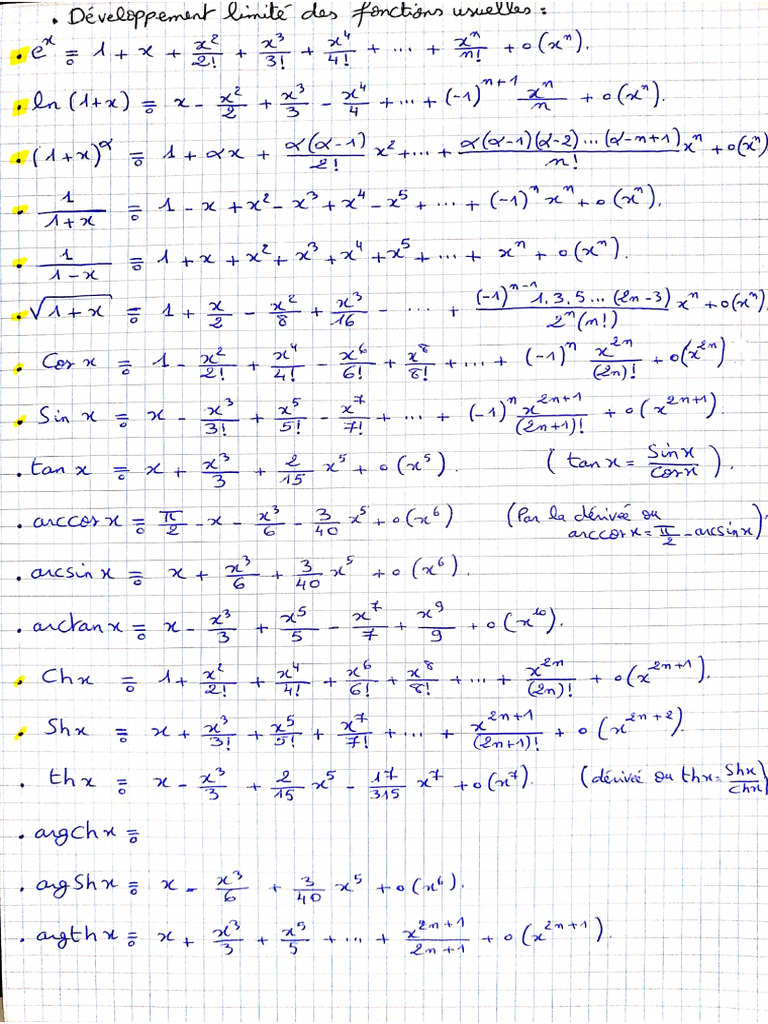 . Développement limité des fonctions usuelles :
• e^x =₀ 1 + x + x²/2! + x³/3! + x⁴/4! + ... + x^n/n! + o(x^n).
• ln(1+x) =₀ x - x²/2 + x³/3 - x⁴/4 + ... + (-1)^(n+1) x^n/n + o(x^n).
• (1+x)^α =₀ 1 + αx + α(α-1)/2! x² + ... + α(α-1)(α-2)...(α-n+1)/n! x^n + o(x^n)
• 1/(1+x) =₀ 1 - x + x² - x³ + x⁴ - x⁵ + ... + (-1)^n x^n + o(x^n).
• 1/(1-x) =₀ 1 + x + x² + x³ + x⁴ + x⁵ + ... + x^n + o(x^n).
• √(1+x) =₀ 1 + x/2 - x²/8 + x³/16 - ... + (-1)^(n-1) 1.3.5...(2n-3)/(2^n(n!)) x^n + o(x^n).
• Cos x =₀ 1 - x²/2! + x⁴/4! - x⁶/6! + x⁸/8! + ... + (-1)^n x^(2n)/(2n)! + o(x^(2n))
• Sin x =₀ x - x³/3! + x⁵/5! - x⁷/7! + ... + (-1)^n x^(2n+1)/(2n+1)! + o(x^(2n+1)).
• tan x =₀ x + x³/3 + 2/15 x⁵ + o(x⁵). (tan x = Sin x/Cos x).
• arccos x =₀ π/2 - x - x³/6 - 3/40 x⁵ + o(x⁶) (Par la dérivée ou
arccos x = π/2 - arcsin x).
• arcsin x =₀ x + x³/6 + 3/40 x⁵ + o(x⁶).
• arctan x =₀ x - x³/3 + x⁵/5 - x⁷/7 + x⁹/9 + o(x¹⁰).
• Ch x =₀ 1 + x²/2! + x⁴/4! + x⁶/6! + x⁸/8! + ... + x^(2n)/(2n)! + o(x^(2n+1)).
• Sh x =₀ x + x³/3! + x⁵/5! + x⁷/7! + ... + x^(2n+1)/(2n+1)! + o(x^(2n+2)).
• th x =₀ x - x³/3 + 2/15 x⁵ - 17/315 x⁷ + o(x⁷). (dérivée ou th x = Sh x/Ch x)
• argch x =₀
• argSh x =₀ x - x³/6 + 3/40 x⁵ + o(x⁶).
• argth x =₀ x + x³/3 + x⁵/5 + ... + x^(2n+1)/(2n+1) + o(x^(2n+1)).